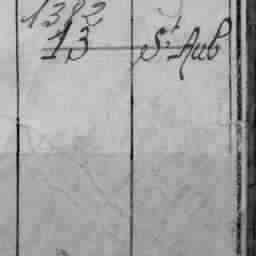 1382
13 St Aub